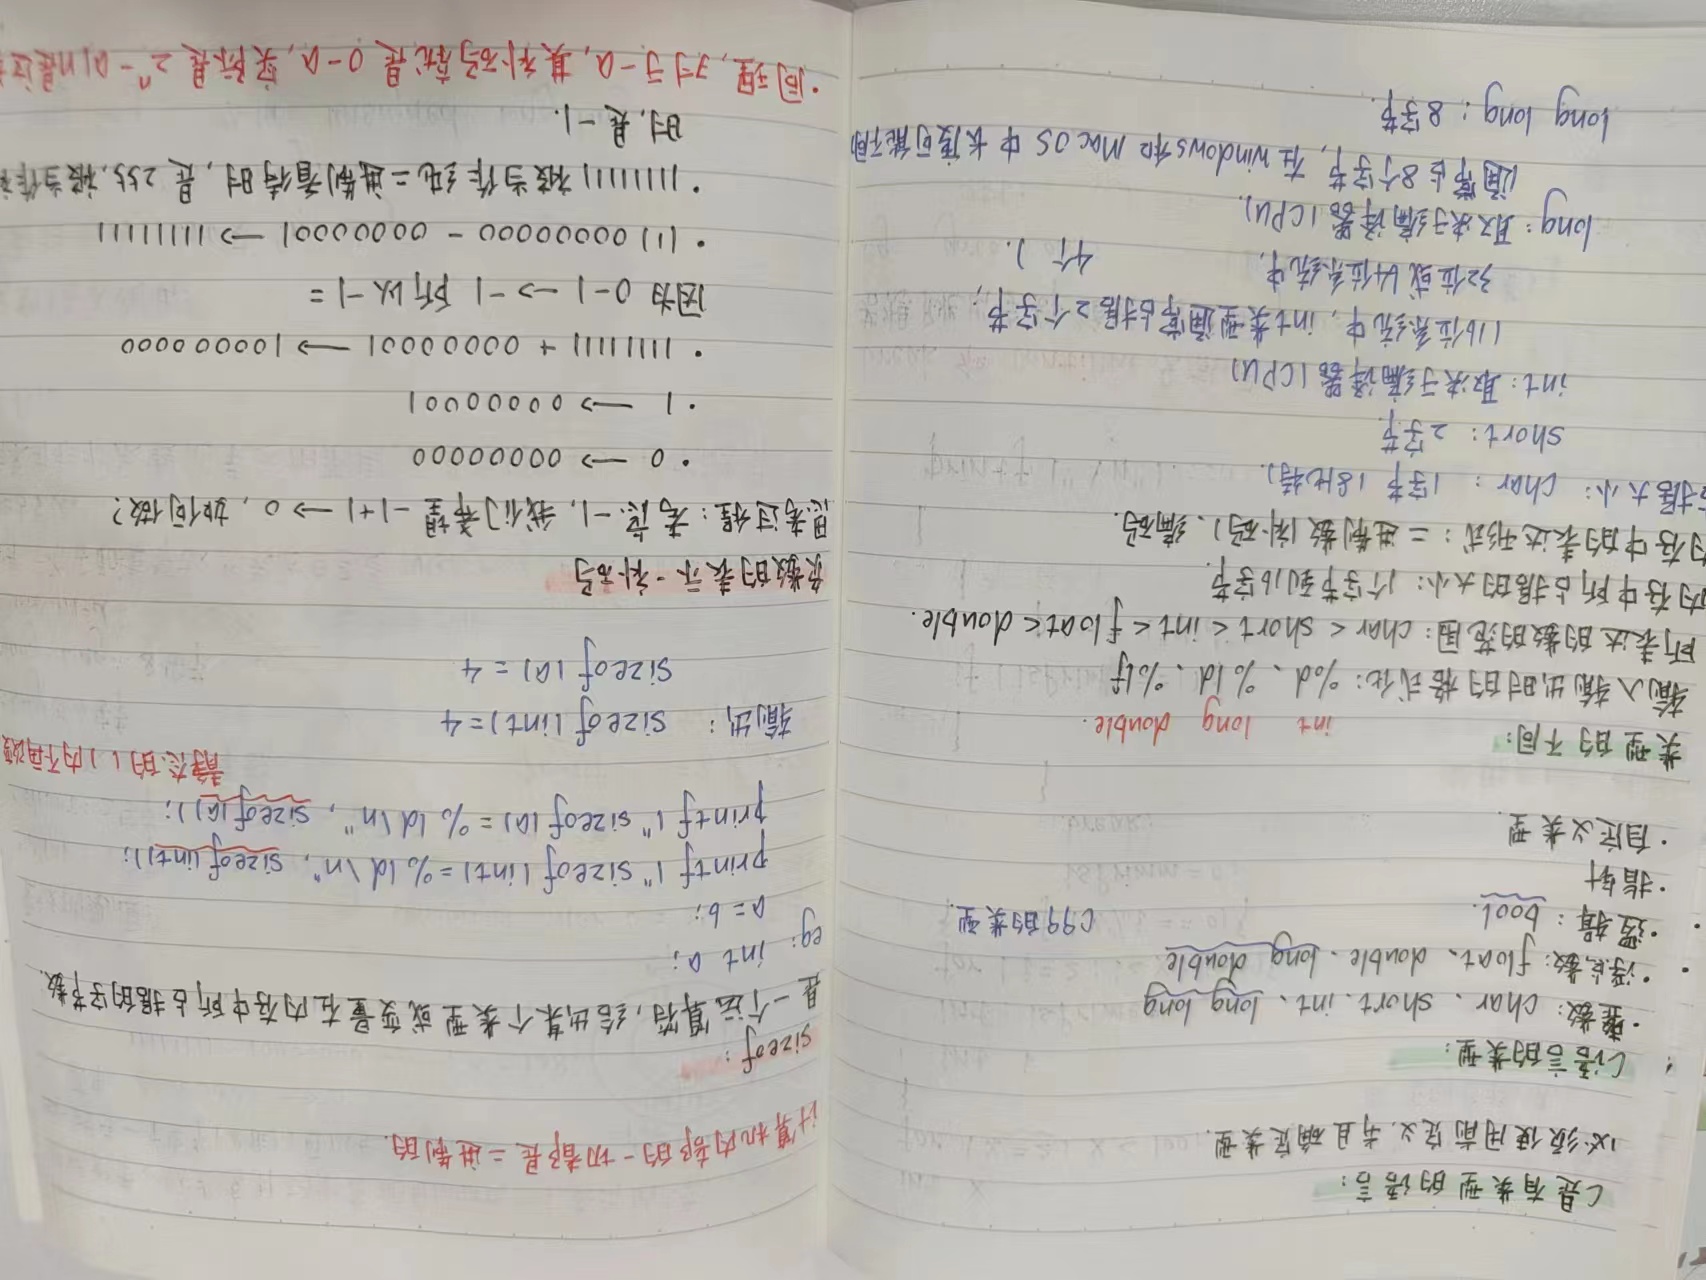 C是有类型的语言:
必须使用前定义,并且确定类型.
C语言的类型:
·整数: char、short、int、long、long long
·浮点数: float、double、long double
·逻辑: bool. C99的类型
·指针
·自定义类型.
类型的不同:
int long double.
输入输出时的格式化: %d、%ld、%lf
所表达的数的范围: char < short < int < float < double.
内存中所占据的大小: 1个字节到16字节
内存中的表达形式: 二进制数(补码)、编码.
占据大小: char: 1字节(8比特).
short: 2字节
int: 取决于编译器(CPU)
(16位系统中, int类型通常占据2个字节;
32位或64位系统中, 4个).
long: 取决于编译器(CPU).
通常占8个字节, 在windows和MacOS中长度可能不同
long long: 8字节.
计算机内部的一切都是二进制的.
sizeof:
是一个运算符, 给出某个类型或变量在内存中所占据的字节数.
eg: int a;
a=b;
printf("sizeof(int)=%ld\n", sizeof(int));
printf("sizeof(a)=%ld\n", sizeof(a));
静态的()内不再做
输出: sizeof(int)=4
sizeof(a)=4
负数的表示-补码
思考过程: 考虑-1, 我们希望 -1+1→0, 如何做?
·0 → 00000000
·1 → 00000001
·11111111 + 00000001 → 100000000
因为 0-1 → -1 所以 -1=
·(1)00000000 - 00000001 → 11111111
·11111111 被当作纯二进制看待时, 是255, 被当作补
时, 是-1.
·同理, 对于-a, 其补码就是 0-a, 实际是 2ⁿ-a, n是这